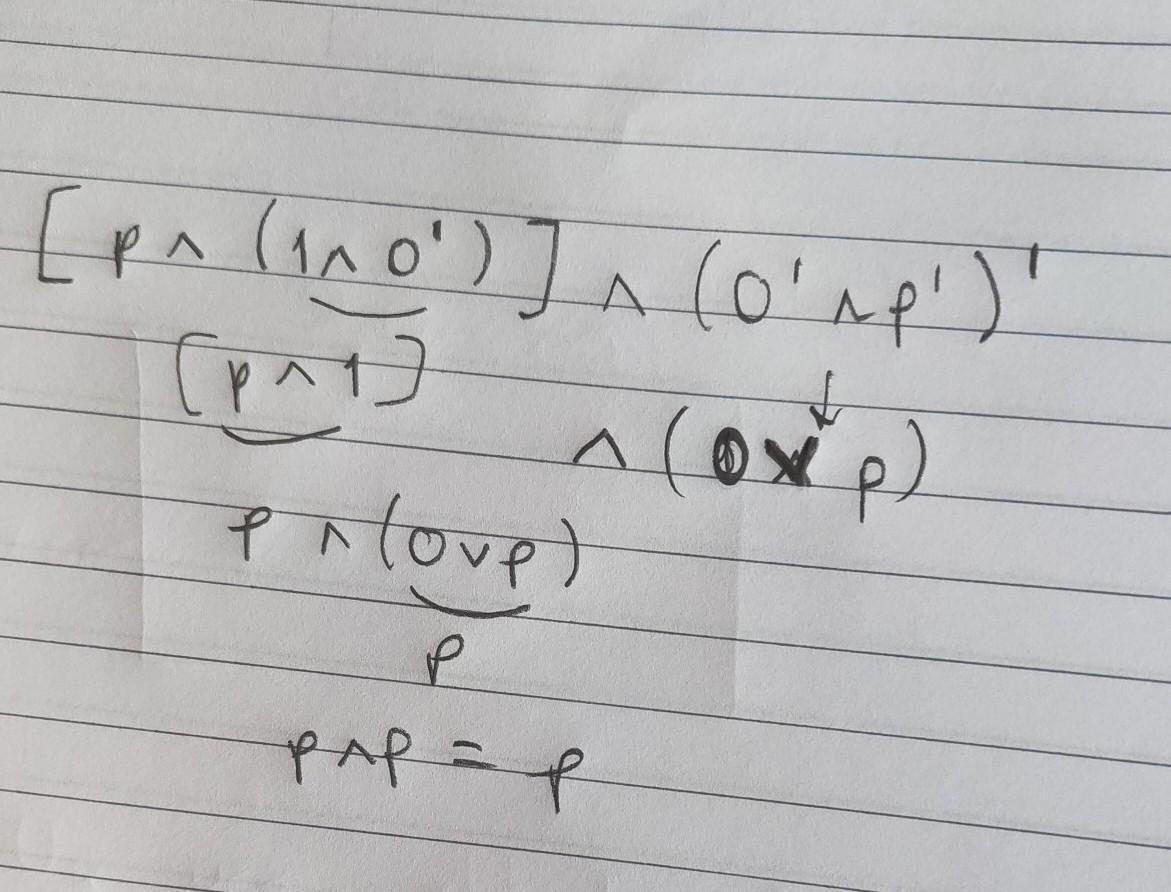 [ p ∧ (1 ∧ 0') ] ∧ (0' ∧ p')'
[p ∧ 1]
∧ (0 ∨ p)
p ∧ (0 ∨ p)
p
p ∧ p = p